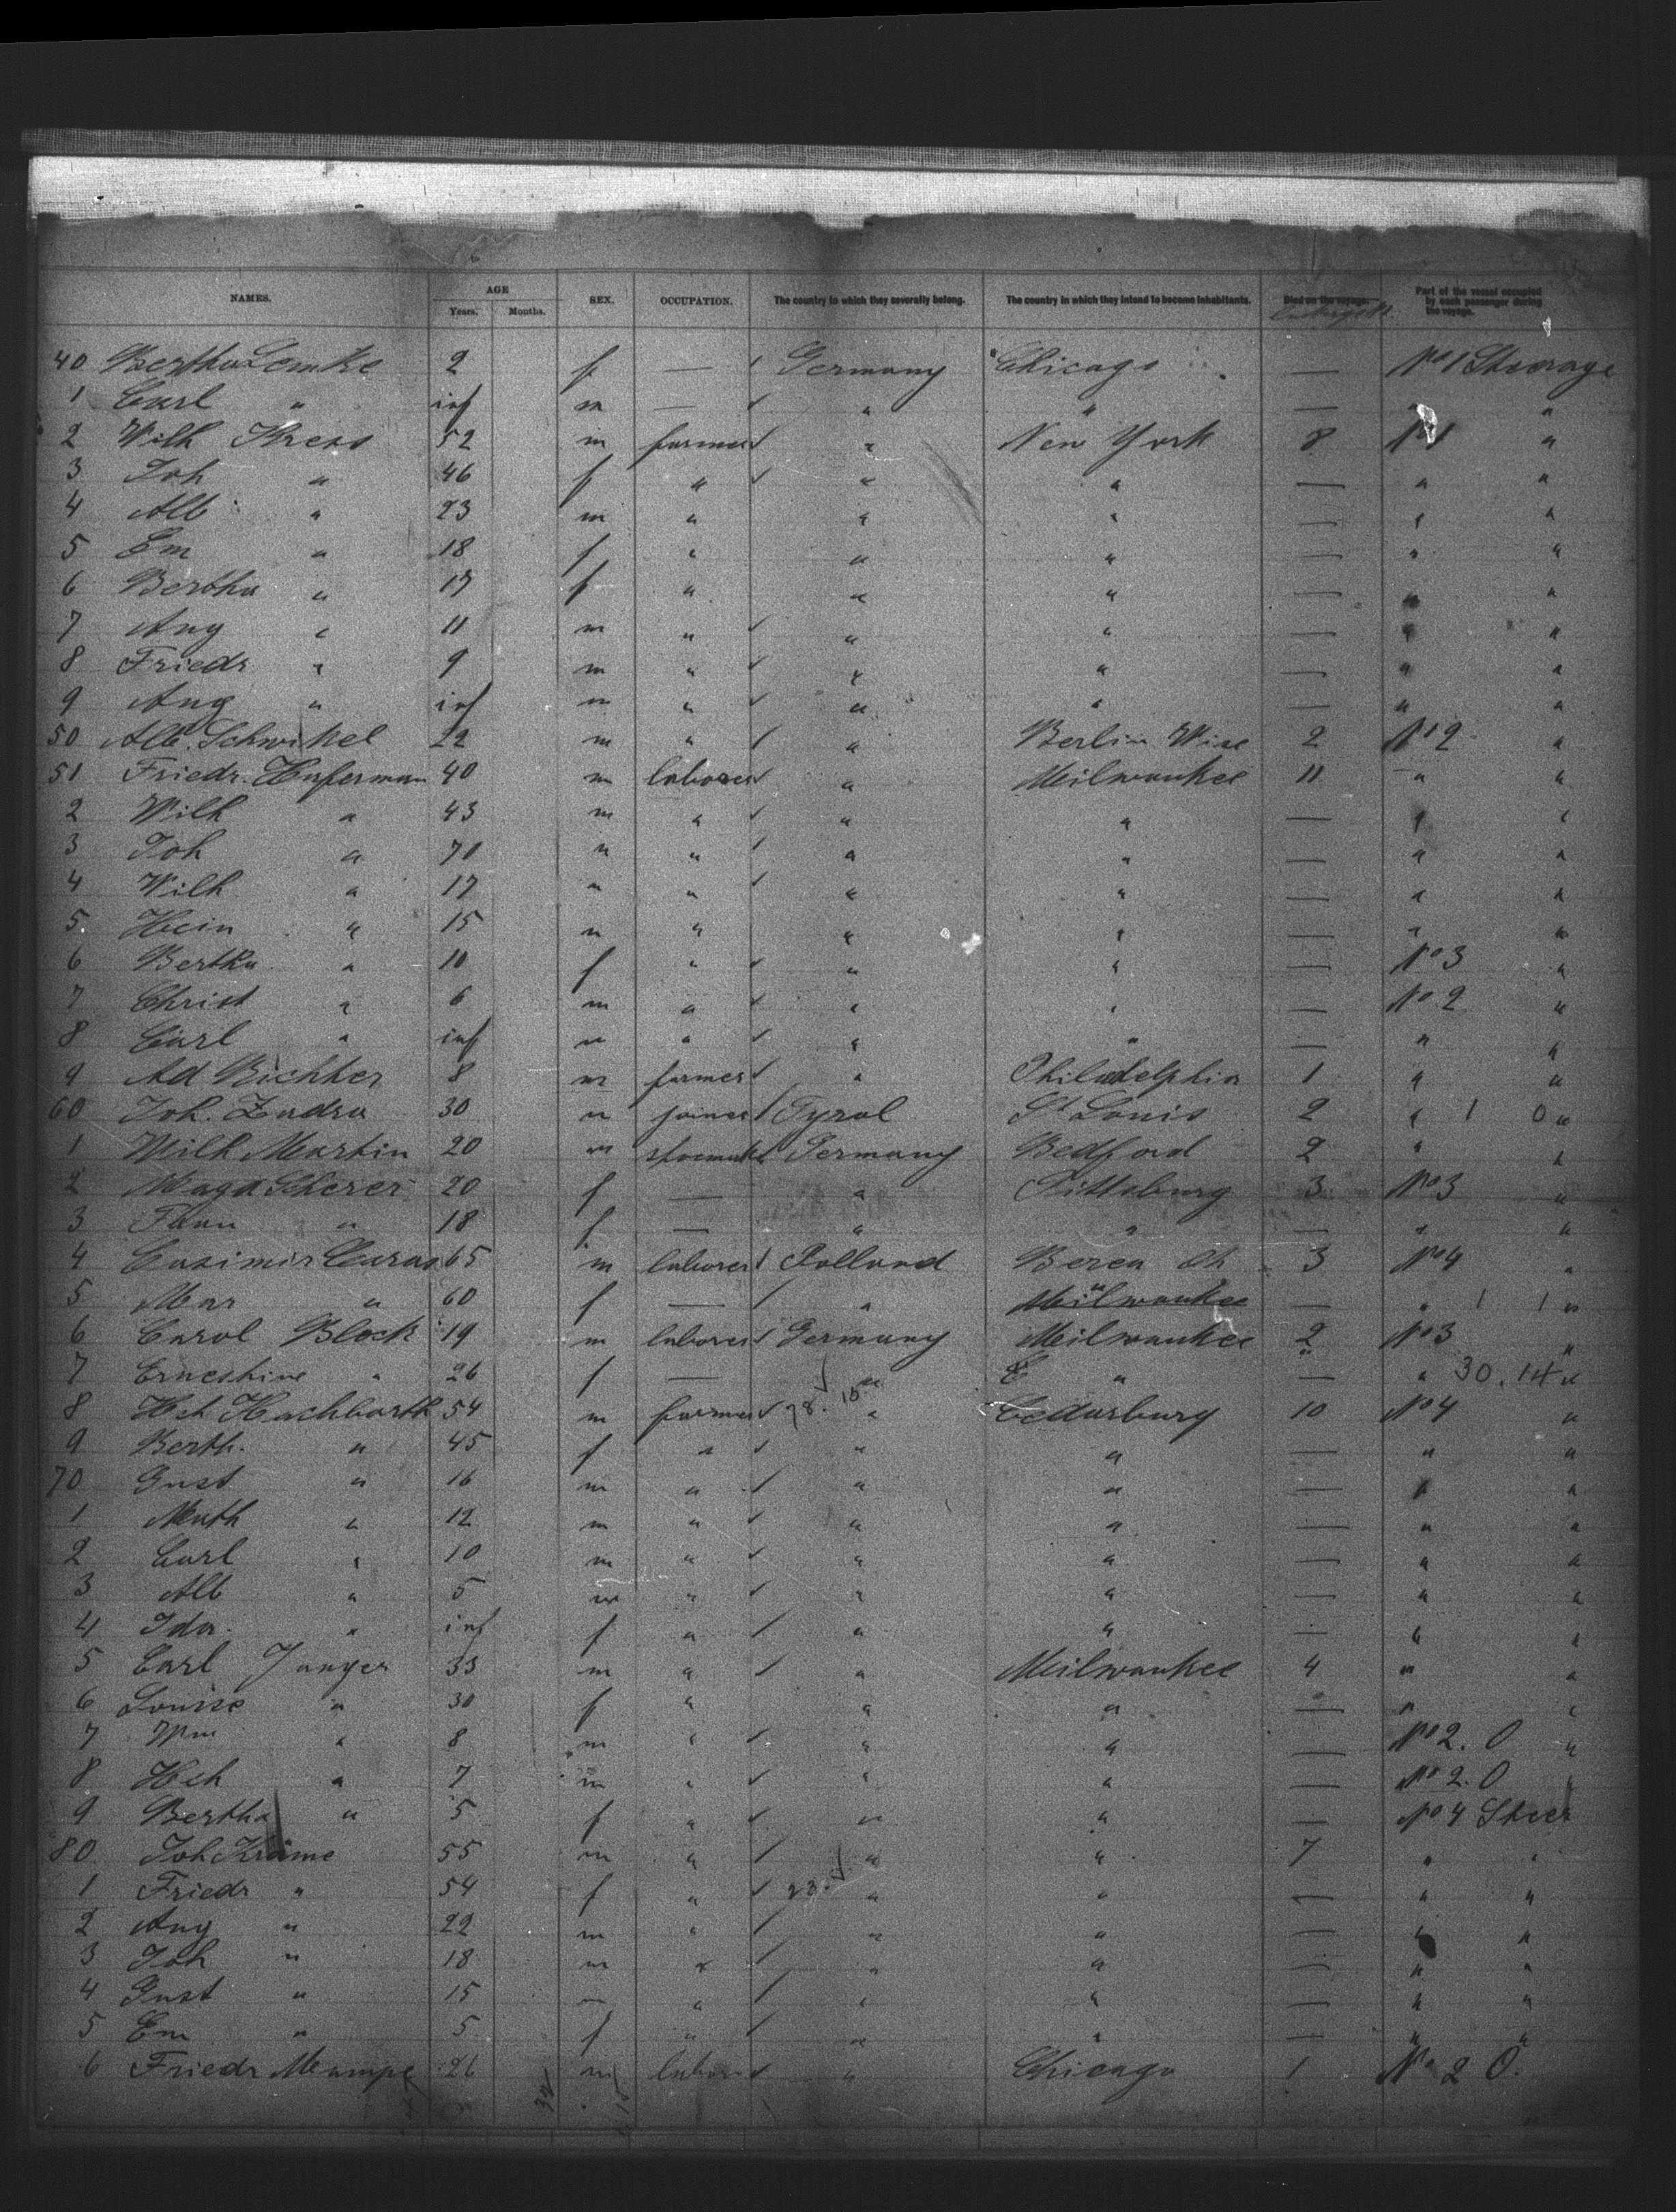 NAMES. AGE Years. Months. SEX. OCCUPATION. The country to which they severally belong. The country in which they intend to become inhabitants. Died on the voyage. Part of the vessel occupied by each passenger during the voyage.
40 Bertha Lemke 2 f — Germany Chicago — No 1 Steerage
1 Carl " inf m — " " — " "
2 Wilh Kress 52 m farmer " New York 8 No 1 "
3 Joh " 46 f " " " — " "
4 Alb " 23 m " " " — " "
5 Em " 18 f " " " — " "
6 Bertha " 17 f " " " — " "
7 Aug " 11 m " " " — " "
8 Friedr " 9 m " " " — " "
9 Aug " inf m " " " — " "
50 Alb. Schwikel 22 m " " Berlin Wisc 2 No 2 "
51 Friedr. Haferman 40 m laborer " Meilwaukee 11 " "
2 Wilh " 43 m " " " — " "
3 Joh " 70 " " " " — " "
4 Wilh " 17 " " " " — " "
5 Hein " 15 " " " " — " "
6 Bertha " 10 f " " " — No 3 "
7 Christ " 6 m " " " — No 2 "
8 Carl " inf m " " " — " "
9 Ad Richter 8 m farmer " Philadelphia 1 " "
60 Joh. Zadra 30 m joiner Tyrol St Louis 2 " 1 0 "
1 Wilh Martin 20 m shoemak Germany Bedford 2 " "
2 Maga Scherer 20 f — " Pittsburg 3 No 3 "
3 " 18 f — " " — " "
4 Casimir Curas 65 m laborer Polland Berea Oh 3 No 4 "
5 Mar " 60 f — " Meilwaukee — " 1 1 "
6 Carol Block 19 m laborer Germany Meilwaukee 2 No 3 "
7 Ernestine " 26 f — " " — " 30.14 "
8 Hch Hachbarth 54 m farmer " Cedarburg 10 No 4 "
9 Berth. " 45 f " " " — " "
70 Gust " 16 m " " " — " "
1 Math " 12 m " " " — " "
2 Carl " 10 m " " " — " "
3 Alb " 5 m " " " — " "
4 Ida. " inf f " " " — " "
5 Carl Junger 33 m " " Meilwaukee 4 " "
6 Louise " 30 f " " " — " "
7 Wm " 8 m " " " — No 2. O "
8 Hch " 7 m " " " — No 2. O
9 Bertha " 5 f " " " — No 4 Steer
80 Joh Kräme 55 m " " " 7 " "
1 Friedr " 54 f " " " — " "
2 Aug " 22 m " " " — " "
3 Joh " 18 m " " " — " "
4 Gust " 15 — " " " — " "
5 Em " 5 f " " " — " "
6 Friedr Mampe 26 m labor " Chicago 1 No 2 O.